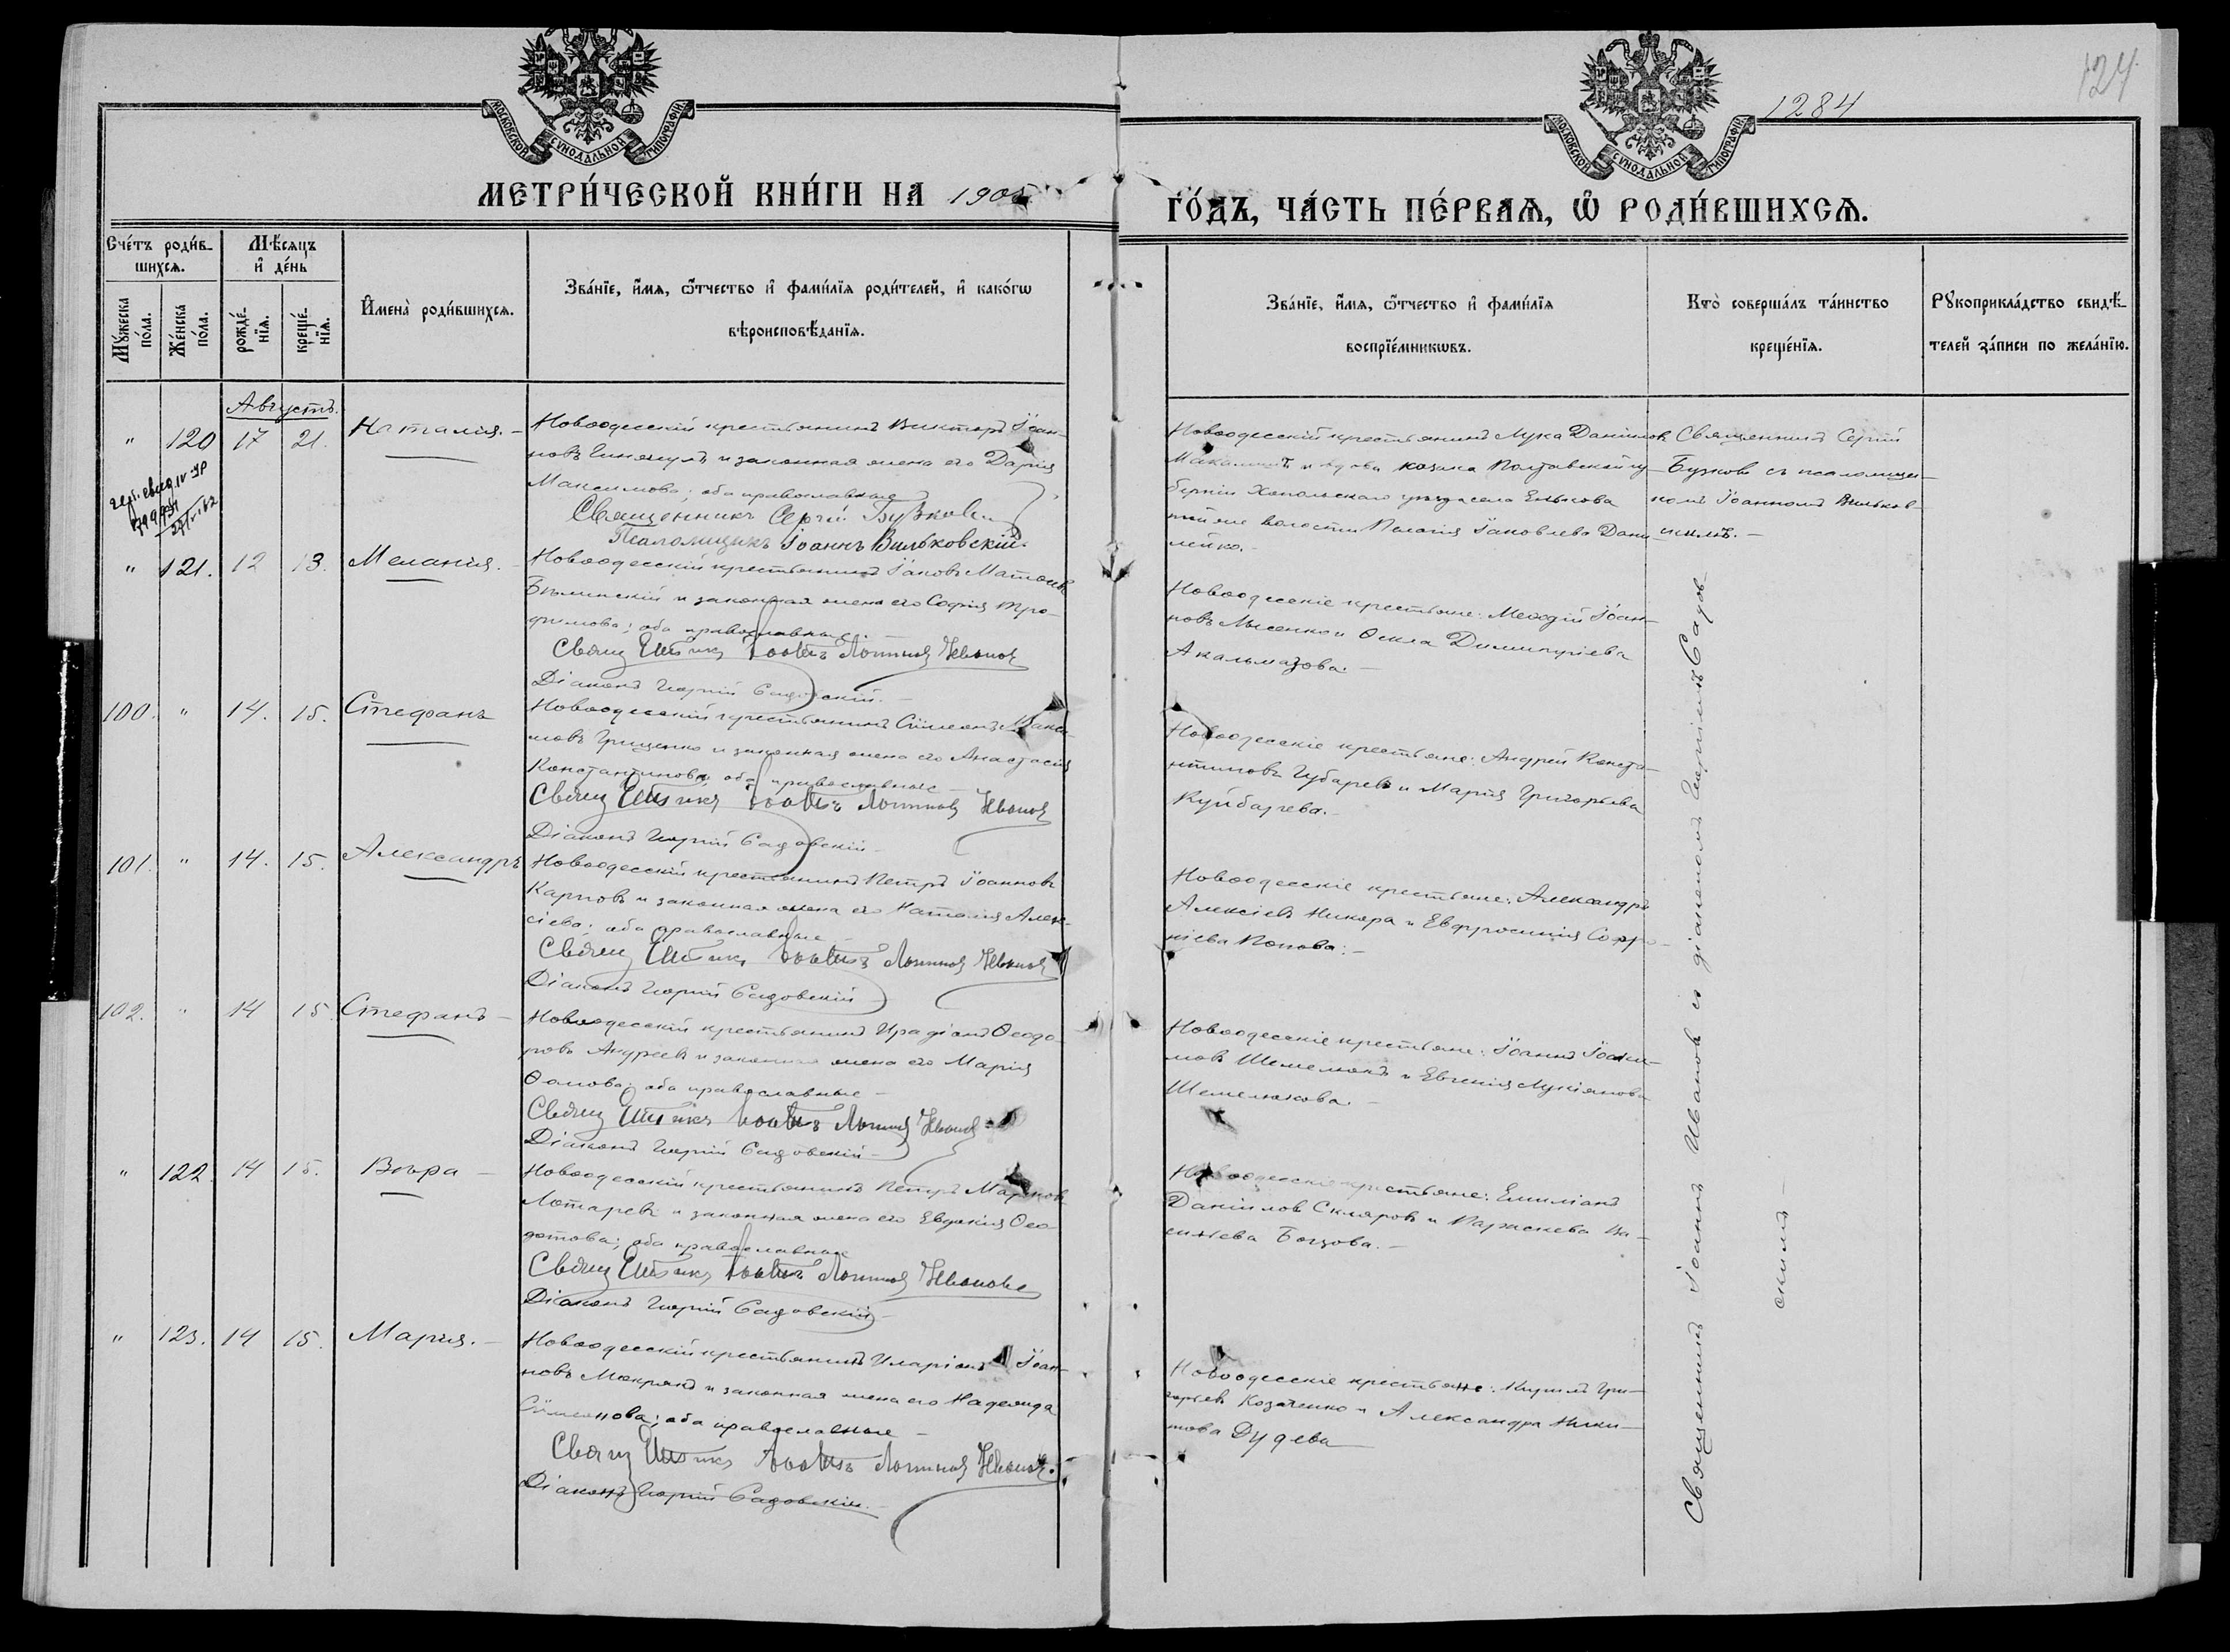 124
1284
МОСКОВСКОЙ СѴНОДАЛЬНОЙ ТИПОГРАФІИ
МОСКОВСКОЙ СѴНОДАЛЬНОЙ ТИПОГРАФІИ
МЕТРИ́ЧЕСКОЙ КНИ́ГИ НА 1905
ГО́ДЪ, ЧА́СТЬ ПЕ́РВАѦ, Ѡ҆ РОДИ́ВШИХСѦ.
Сче́тъ роди́в-
шихсѧ.
Мꙋ́жеска по́ла.
Же́нска по́ла.
Мѣ́сѧцъ
и҆ де́нь
рожде́-
нїѧ.
креще́-
нїѧ.
И҆мена̀ роди́вшихсѧ.
Зва́нїе, и҆́мѧ, ѻ҆́тчество и҆ фами́лїѧ роди́телей, и҆ како́гѡ
вѣроисповѣ́данїѧ.
Зва́нїе, и҆́мѧ, ѻ҆́тчество и҆ фами́лїѧ
воспрїе́мникѡвъ.
Кто̀ соверша́лъ та́инство
креще́нїѧ.
Рꙋкоприкла́дство свидѣ́-
телей за́писи по жела́нїю.
Августъ.
" 120 17 21. Наталія. –
Новоодесскій крестьянинъ Викторъ Іоан-
новъ и законная жена его Дарія
Максимова; оба православные
Священникъ Сергій Бузковъ
Псаломщикъ Іоаннъ Вильковскій.
Новоодесскій крестьянинъ Лука Даніиловъ
и вдова казака Полтавской гу-
берніи Хорольскаго уѣзда села
волости Пелагія Іаковлева Дани-
лейко.
Священникъ Сергій
Бузковъ съ псаломщи-
комъ Іоанномъ Вильков-
скимъ. –
" 121. 12 13. Меланія. –
Новоодесскій крестьянинъ Іаковъ
и законная жена его Софія Тро-
фимова; оба православные. –
Священникъ Іоаннъ Ивановъ
Діаконъ Георгій Садовскій. –
Новоодесскіе крестьяне: Меѳодій Іоан-
новъ Лысенко и Ѳекла Димитріева
Акальмазова. –
100. " 14. 15. Стефанъ
Новоодесскій крестьянинъ Сѵмеонъ Макси-
мовъ Грищенко и законная жена его Анастасія
Константинова; оба православные –
Священникъ Іоаннъ Ивановъ
Діаконъ Георгій Садовскій –
Новоодесскіе крестьяне: Андрей Конста-
нтиновъ Губаревъ и Марія Григорьева
Куйбарева. –
101. " 14. 15. Александръ
Новоодесскій крестьянинъ Петръ Іоанновъ
Карповъ и законная жена его Наталія Алек-
сіева; оба православные –
Священникъ Іоаннъ Ивановъ
Діаконъ Георгій Садовскій –
Новоодесскіе крестьяне: Александръ
Алексіевъ и Евфросинія Софро-
ніева Попова. –
102. " 14 15. Стефанъ –
Новоодесскій крестьянинъ Ѳеодо-
ровъ Андреевъ и законная жена его Марія
Ѳомова; оба православные –
Священникъ Іоаннъ Ивановъ
Діаконъ Георгій Садовскій –
Новоодесскіе крестьяне: Іоаннъ Іоаки-
мовъ Шемелюкъ и Евгенія Лукіянова
Шемелюкова. –
" 122. 14 15. Вѣра –
Новоодесскій крестьянинъ Петръ Марковъ
Лотаревъ и законная жена его Евдокія Ѳео-
дотова; оба православные
Священникъ Іоаннъ Ивановъ
Діаконъ Георгій Садовскій –
Новоодесскіе крестьяне: Емиліанъ
Даніиловъ Скляровъ и Параскева Ва-
силіева. –
" 123. 14 15. Марія. –
Новоодесскій крестьянинъ Иларіонъ Іоан-
новъ Мокрякъ и законная жена его Надежда
Сѵмеонова; оба православные –
Священникъ Іоаннъ Ивановъ.
Діаконъ Георгій Садовскій. –
Новоодесскіе крестьяне: Кирилъ Гри-
горьевъ Козаченко и Александра Ники-
това Дудева
Священникъ Іоаннъ Ивановъ съ діакономъ Георгіемъ Садов-
скимъ –